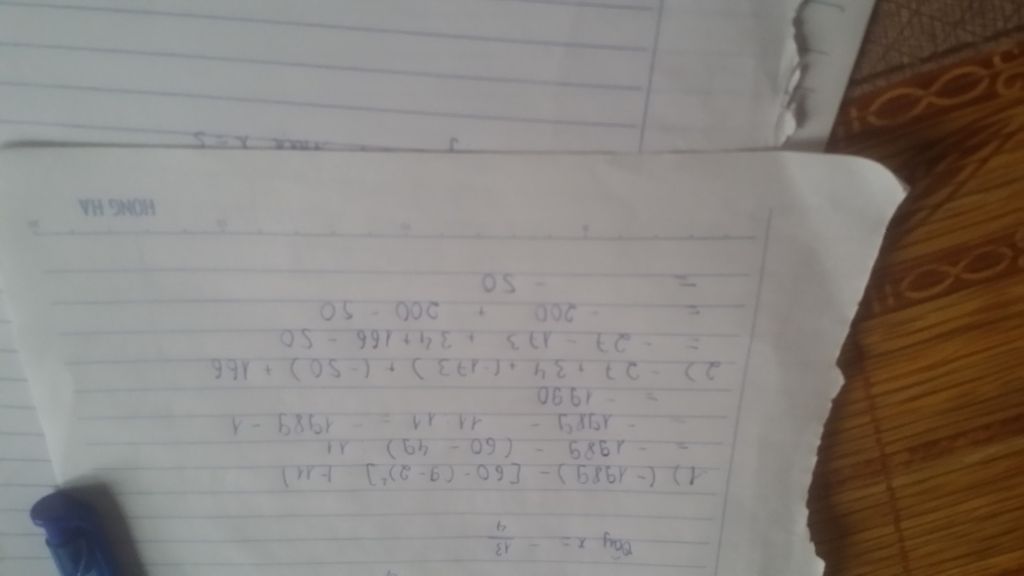 Vậy x = - 13/4
1) (-1989) - [60 - (9-2)²] : 11
= - 1989 - (60 - 49) : 11
= - 1989 - 11 : 11 = - 1989 - 1
= - 1990
2) - 27 + 34 + (-173) + (-50) + 166
= - 27 - 173 + 34 + 166 - 50
= - 200 + 200 - 50
= - 50
HONG HA
x = 5